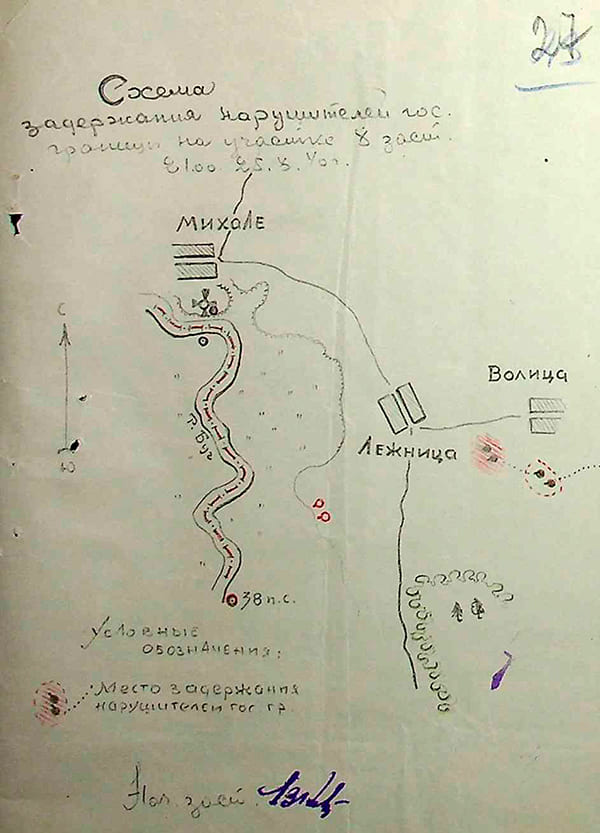 27
Схема
задержания нарушителей гос.
границы на участке 8 заст.
21.00 25.8.40г.
МИХАЛЕ
С
Ю
Р. Буг
ВОЛИЦА
ЛЕЖНИЦА
38 п.с.
Условные
обозначения:
Место задержания
нарушителей гос гр.
Нач. заст.